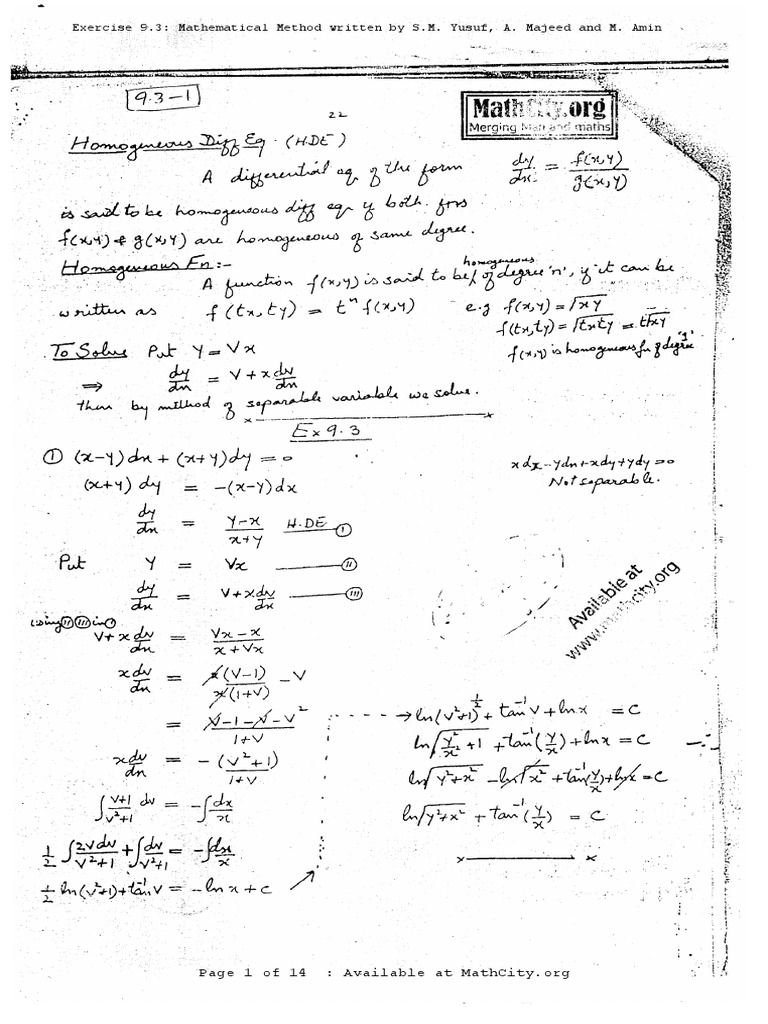 Exercise 9.3: Mathematical Method written by S.M. Yusuf, A. Majeed and M. Amin
9.3-1
22
MathCity.org
Merging Man and maths
Homogeneous Diff Eq. (H.D.E)
A differential eq. of the form dy/dx = f(x,y)/g(x,y)
is said to be homogeneous diff eqn if both fns
f(x,y) & g(x,y) are homogeneous of same degree.
Homogeneous Fn:-
A function f(x,y) is said to be homogeneous of degree 'n', if it can be
written as f(tx,ty) = tⁿ f(x,y) e.g f(x,y) = √xy
f(tx,ty) = √txty = t√xy
f(x,y) is homogeneous fn of degree '1'
To Solve Put y = Vx
⇒ dy/dx = V + x dv/dx
then by method of separable variable we solve.
Ex 9.3
① (x-y)dx + (x+y)dy = 0
xdx - ydx + xdy + ydy = 0
Not separable.
(x+y) dy = -(x-y)dx
dy/dx = y-x/x+y H.DE ①
Put y = Vx ②
dy/dx = V + x dv/dx ③
using ② ③ in ①
V + x dv/dx = Vx - x/x + Vx
x dv/dx = x(V-1)/x(1+V) - V
= V-1-V-V²/1+V
x dv/dx = -(V²+1)/1+V
∫ V+1/V²+1 dv = -∫ dx/x
1/2 ∫ 2Vdv/V²+1 + ∫ dv/V²+1 = -∫ dx/x
1/2 ln(V²+1) + tan⁻¹V = -ln x + C
→ ln(V²+1)^1/2 + tan⁻¹V + ln x = C
ln√(y²/x² + 1) + tan⁻¹(y/x) + ln x = C
ln√(y²+x²) - ln√x² + tan⁻¹(y/x) + ln x = C
ln√(y²+x²) + tan⁻¹(y/x) = C
Available at
www.mathcity.org
Page 1 of 14 : Available at MathCity.org